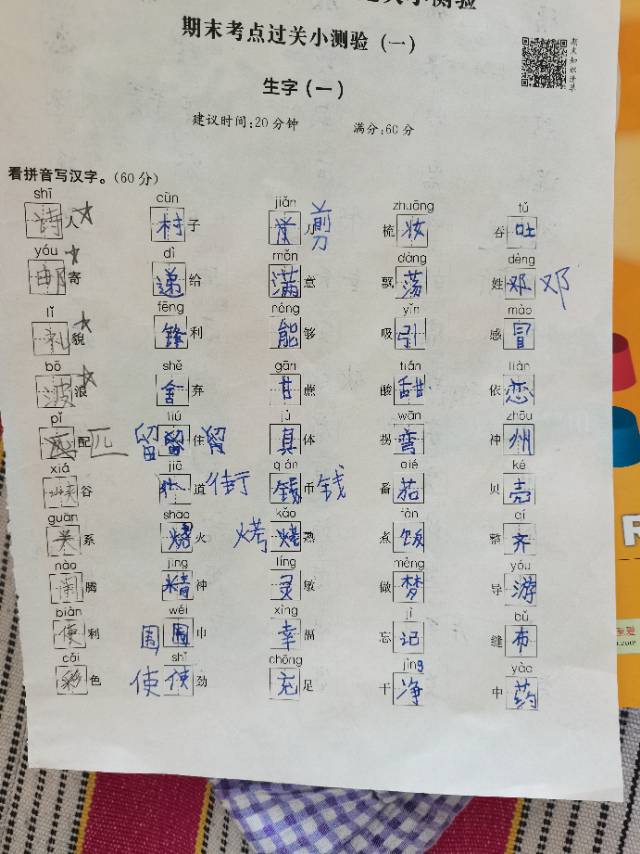 期末考点过关小测验(一)
生字(一)
建议时间:20分钟 满分:60分
看拼音写汉字。(60分)
shī cūn jiǎn zhuāng tǔ
诗人 村子 儿 剪 梳妆 吞吐
yóu dì mǎn dàng dèng
邮寄 递给 满意 飘荡 姓邓 邓
lǐ fēng néng yǐn mào
礼貌 锋利 能够 吸引 感冒
bō shě gān tián liàn
波浪 舍弃 甘蔗 酸甜 依恋
pǐ liú jù wān zhōu
配 匹 留 留住 留 具体 拐弯 神州
xiá jiē qián qié ké
谷 道 街 钱币 钱 番茄 贝壳
guān shāo kǎo fàn qí
关系 烧火 烤 烤熟 煮饭 整齐
nào jīng líng mèng yóu
闹腾 精神 灵敏 做梦 导游
biàn wéi xìng jì bù
便利 围 围巾 幸福 忘记 缝布
cǎi shǐ chōng jìng yào
彩色 使 使劲 充足 干净 中药